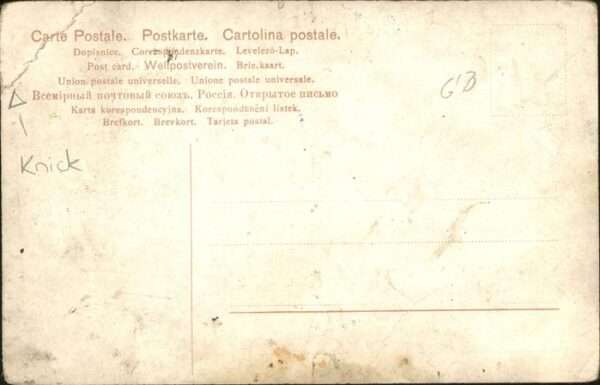 Carte Postale. Postkarte. Cartolina postale.
Dopisnice. Correspondenzkarte. Levelező-Lap.
Post card. Weltpostverein. Brin.kaart.
Union postale universelle. Unione postale universale.
Всемірный почтовый союзъ. Россія. Открытое письмо
Karta korespondencyjna. Korespondenční lístek.
Brefkort. Brevkort. Tarjeta postal.
GB
Knick